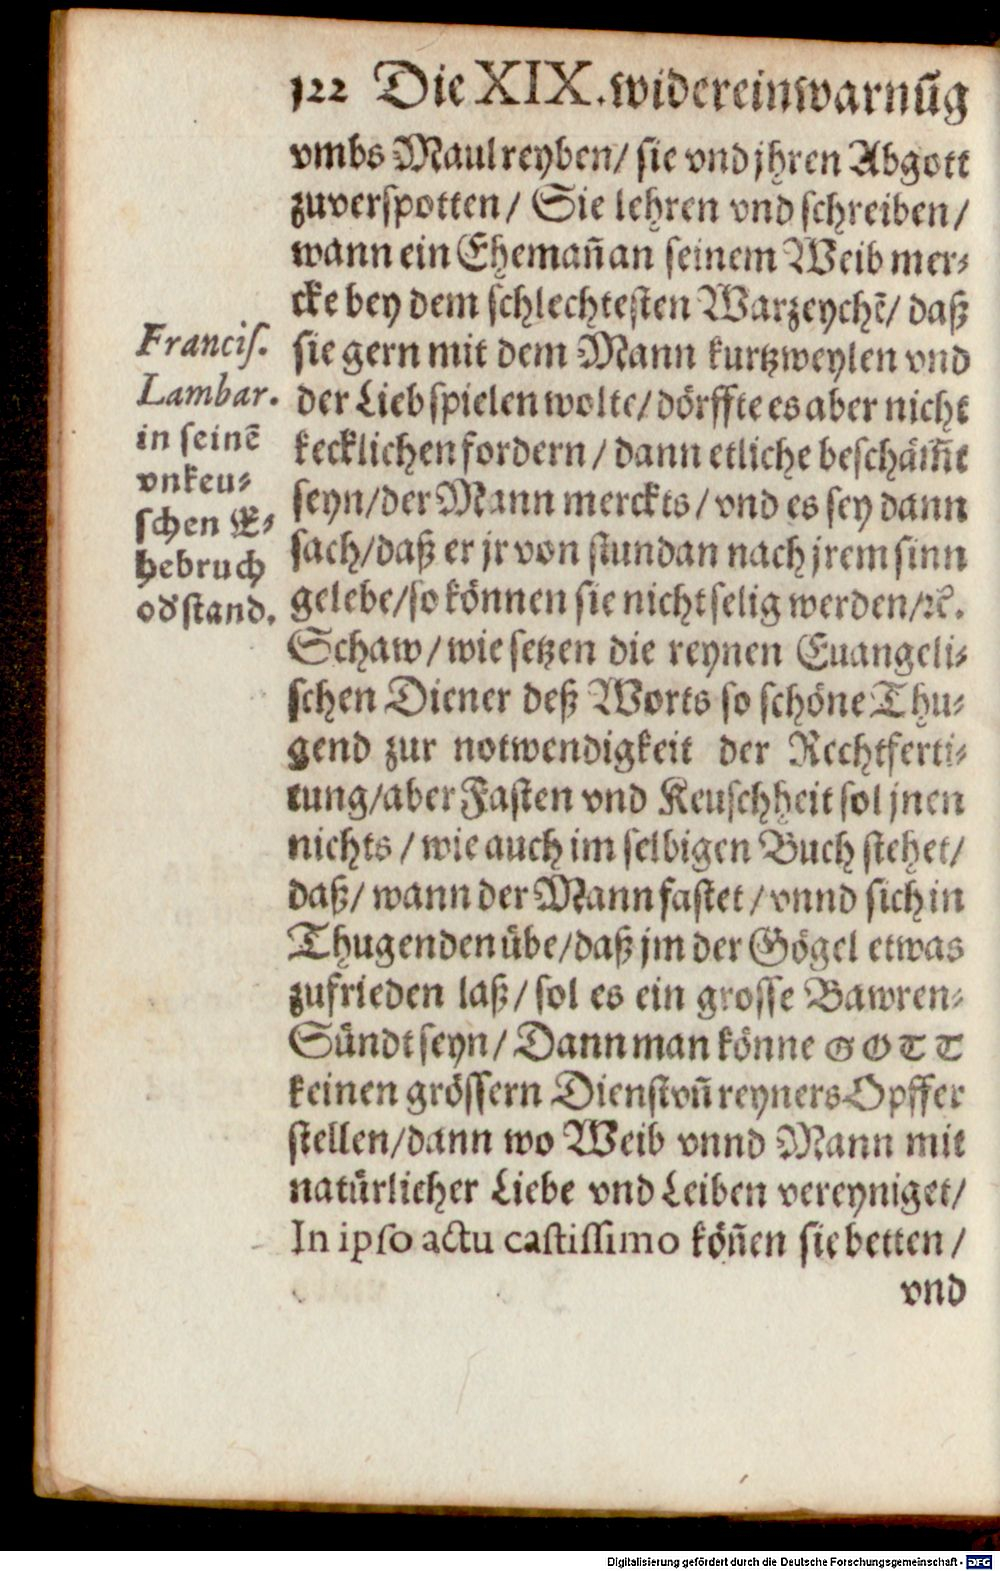 122 Die XIX. widereinwarnũg
vmbs Maulreyben/ sie vnd jhren Abgott
zuverspotten/ Sie lehren vnd schreiben/
wann ein Ehemañ an seinem Weib mer-
cke bey dem schlechtesten Warzeychẽ/ daß
sie gern mit dem Mann kurtzweylen vnd
der Lieb spielen wolte/ dörffte es aber nicht
kecklichen fordern/ dann etliche beschäm̃t
seyn/ der Mann merckts/ vnd es sey dann
sach/ daß er jr von stundan nach jrem sinn
gelebe/ so können sie nicht selig werden/ ꝛc.
Schaw/ wie setzen die reynen Euangeli-
schen Diener deß Worts so schöne Thu-
gend zur notwendigkeit der Rechtferti-
tung/ aber Fasten vnd Keuschheit sol jnen
nichts/ wie auch im selbigen Buch stehet/
daß/ wann der Mann fastet/ vnnd sich in
Thugenden übe/ daß jm der Gögel etwas
zufrieden laß/ sol es ein grosse Bawren-
Sündt seyn/ Dann man könne GOTT
keinen grössern Dienst vñ reyners Opffer
stellen/ dann wo Weib vnnd Mann mit
natürlicher Liebe vnd Leiben vereyniget/
In ipso actu castissimo köñen sie betten/
vnd
Francis.
Lambar.
in seinẽ
vnkeu-
schen E-
hebruch
od' stand.
Digitalisierung gefördert durch die Deutsche Forschungsgemeinschaft - DFG